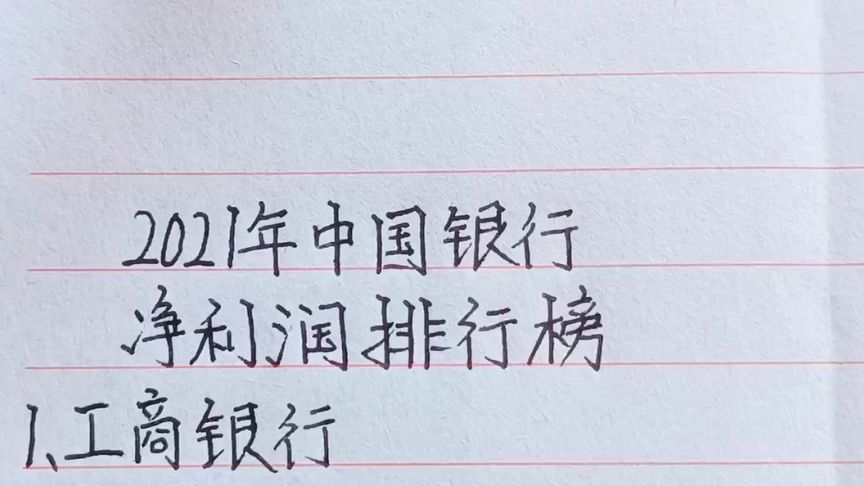 2021年中国银行
净利润排行榜
1、工商银行